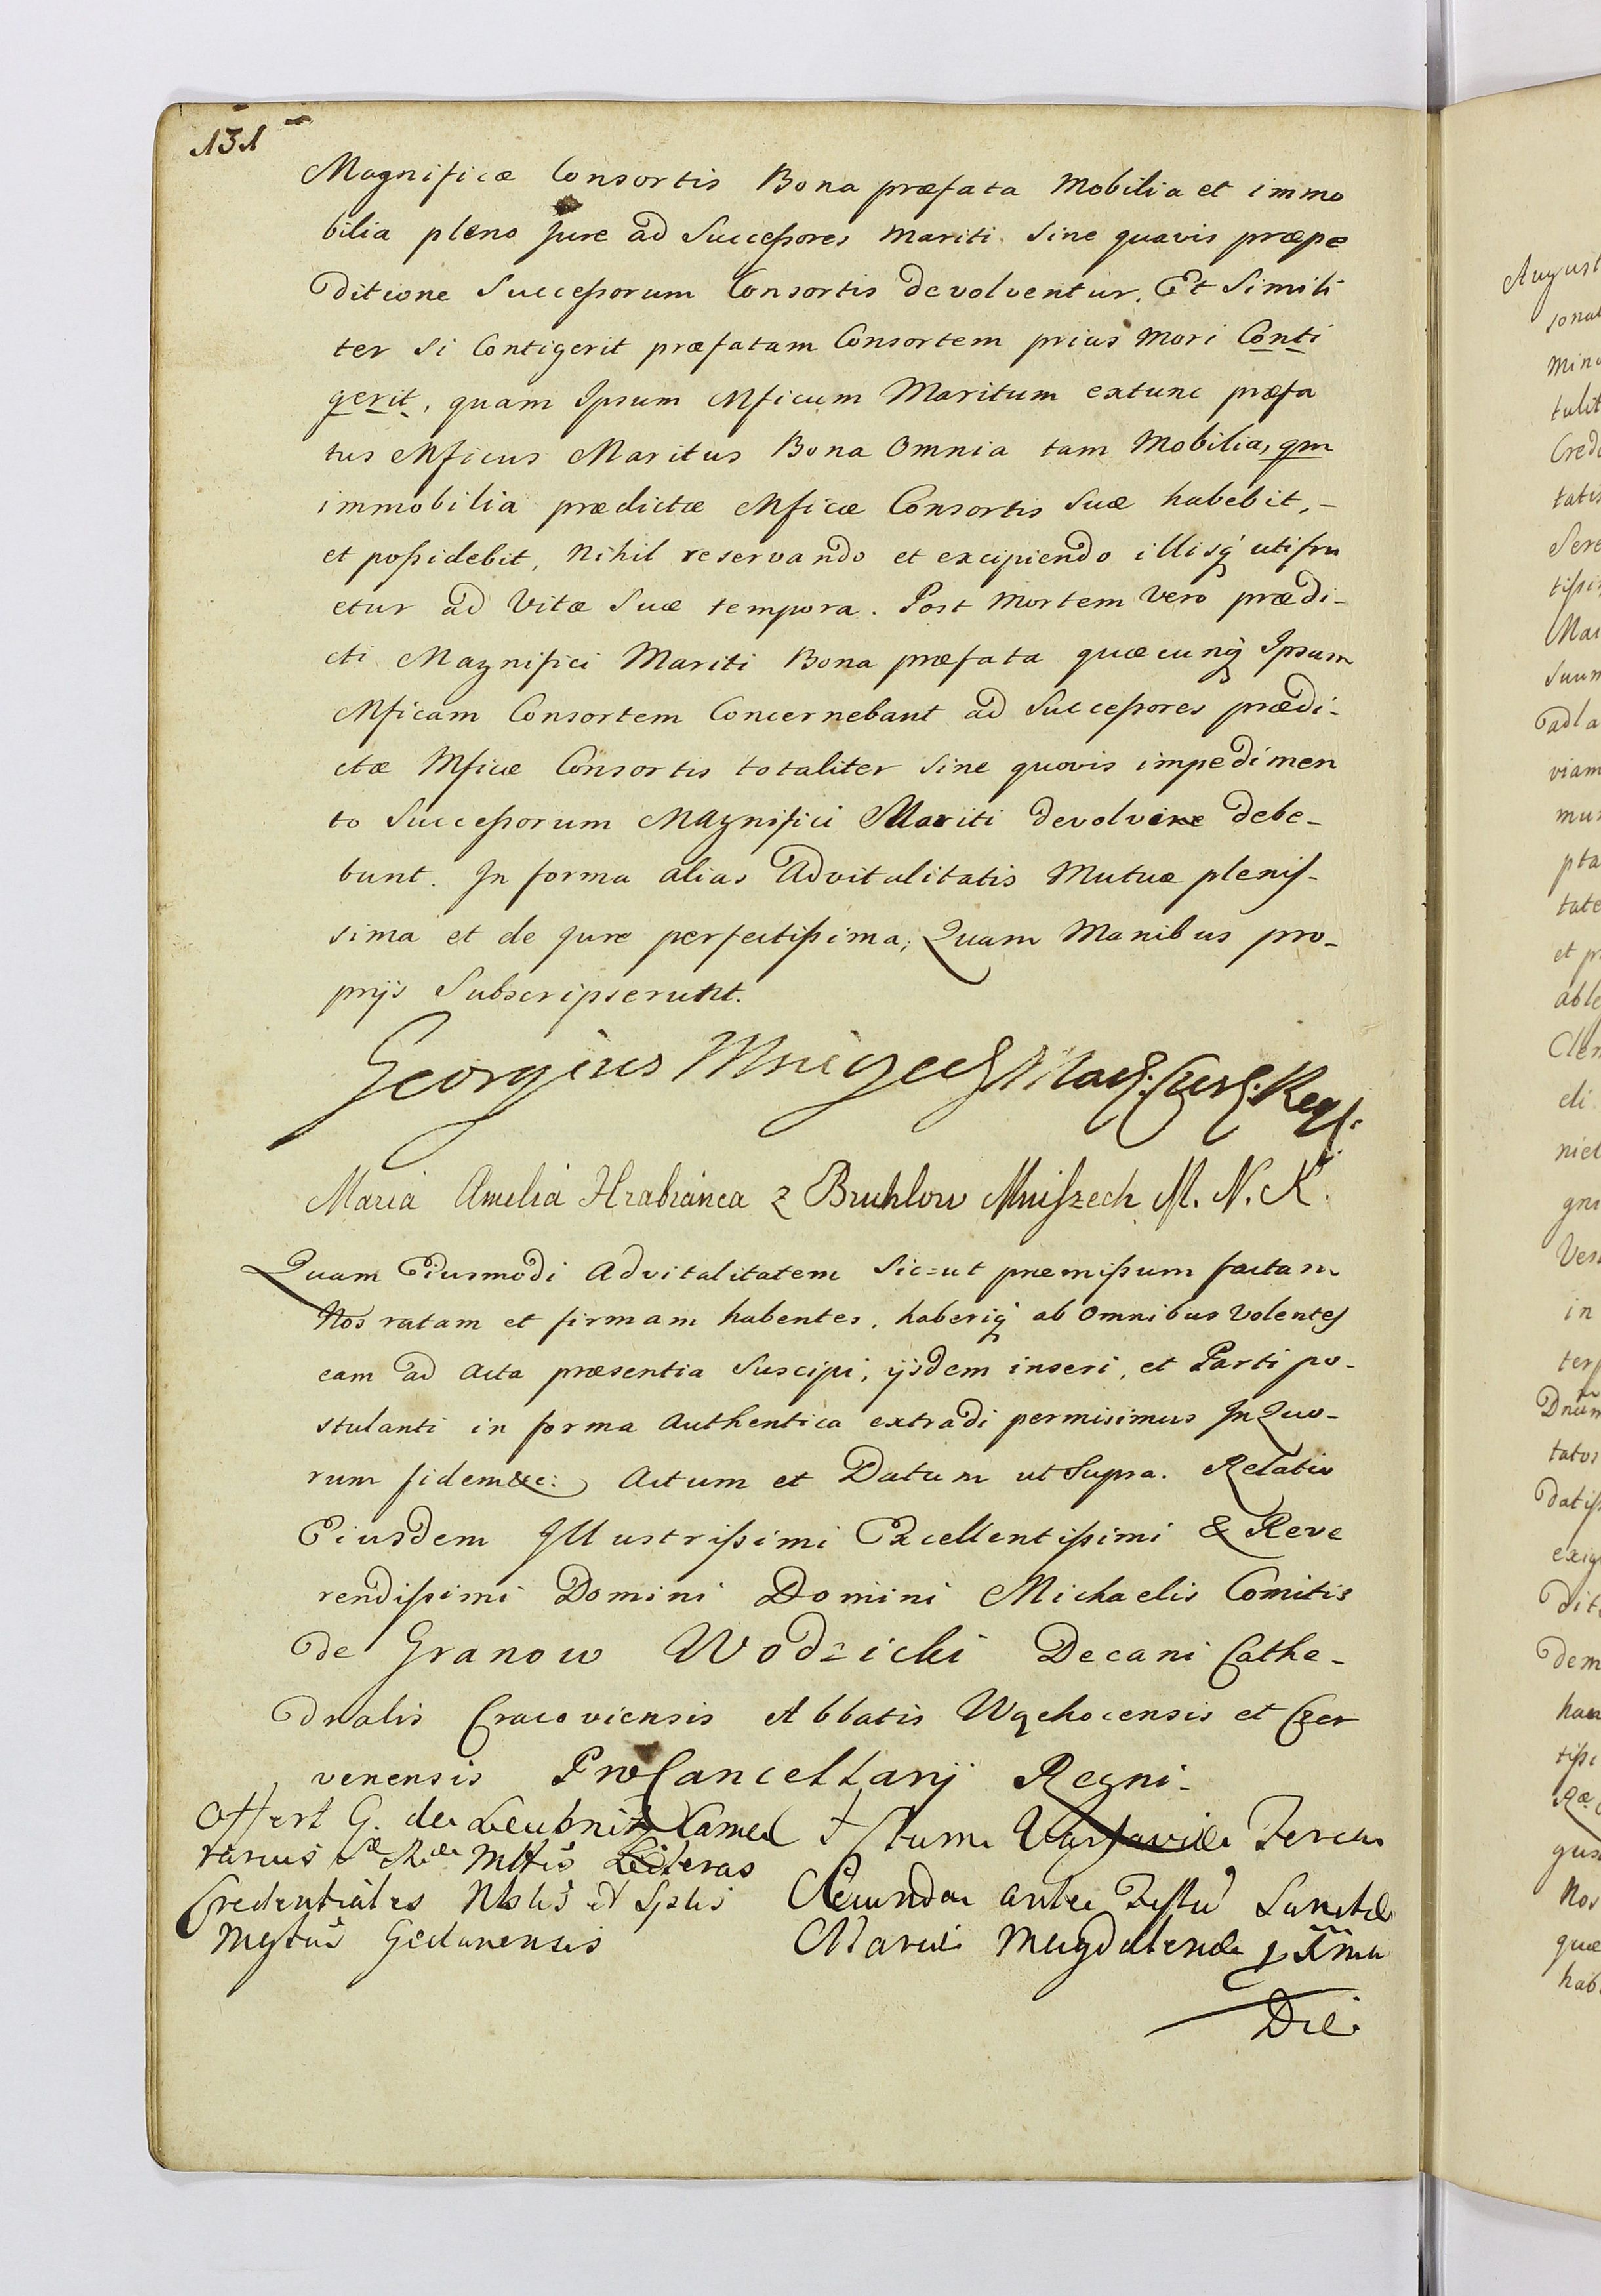 131
Magnificæ Consortis Bona præfata Mobilia et immo
bilia pleno Jure ad Succeßores Mariti Sine quavis præpe
ditione Succeßorum Consortis devolventur. Et Simili
ter Si Contigerit præfatam Consortem prius Mori Conti
gerit, quam Ipsum Mficum Maritum extunc præfa
tus Mficus Maritus Bona Omnia tam Mobilia, qm
immobilia prædictæ Mficæ Consortis Suæ habebit,-
et poßidebit, Nihil reservando et excipiendo illisq́ utifru
etur ad Vitæ Suæ tempora. Post Mortem Vero prædi-
cti Magnifici Mariti Bona præfata quæcunq́ Ipsam
Mficam Consortem Concernebant ad Succeßores prædi-
ctæ Mficæ Consortis totaliter Sine quovis impedimen
to Succeßorum Magnifici Mariti devolvere debe-
bunt. In forma alias Advitalitatis Mutuæ pleniſ-
sima et de Jure perfectißima, Quam Manibus pro-
prijs Subscripserunt.
Georgius Mniszech
Maria Amelia Hrabianca z Bruhlow Mniſzech M. N. K.
Quam Eiusmodi Advitalitatem Sic=ut præmißum factam
Nos ratam et firmam habentes, haberiq́ ab Omnibus Volentes
eam ad Acta præsentia Suscipi, ijsdem inseri, et Parti po-
stulanti in forma Authentica extradi permisimus In Quo-
rum fidem &c: Actum et Datum ut Supra. Relatio
Eiusdem Illustrißimi Excellentißimi & Reve
rendißimi Domini Domini Michaelis Comitis
de Granow Wodzicki Decani Cathe-
dralis Cracoviensis Abbatis Wąchocensis et Czer
venensis ProCancellarij Regni-
Offert G. de Leubnitz Came
rarius Literas
Credentiales
Gedanensis
Actum Varsaviæ Feria
Secunda ante Festũ Sanctæ
Mariæ Magdalenæ
Die
August